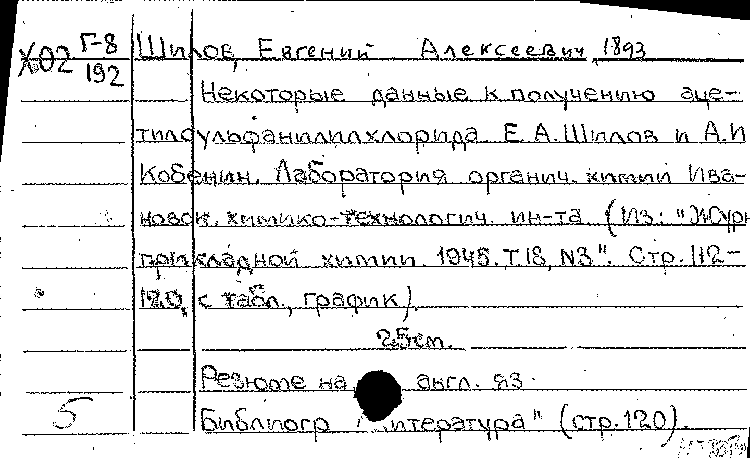 Х02 Г-8 Шилов, Евгений Алексеевич, 1893
192
Некоторые данные к получению аце-
тилсульфанилилхлорида. Е.А.Шилов и А.И
Кобенин. Лаборатория органич. химии Ива-
новск. химико-технологич. ин-та. (Из: "Журн
прикладной химии. 1945. Т.18, N3". Стр. 112-
120, с табл., график).
25см.
Резюме на англ. яз.
5 Библиогр "Литература" (стр.120).